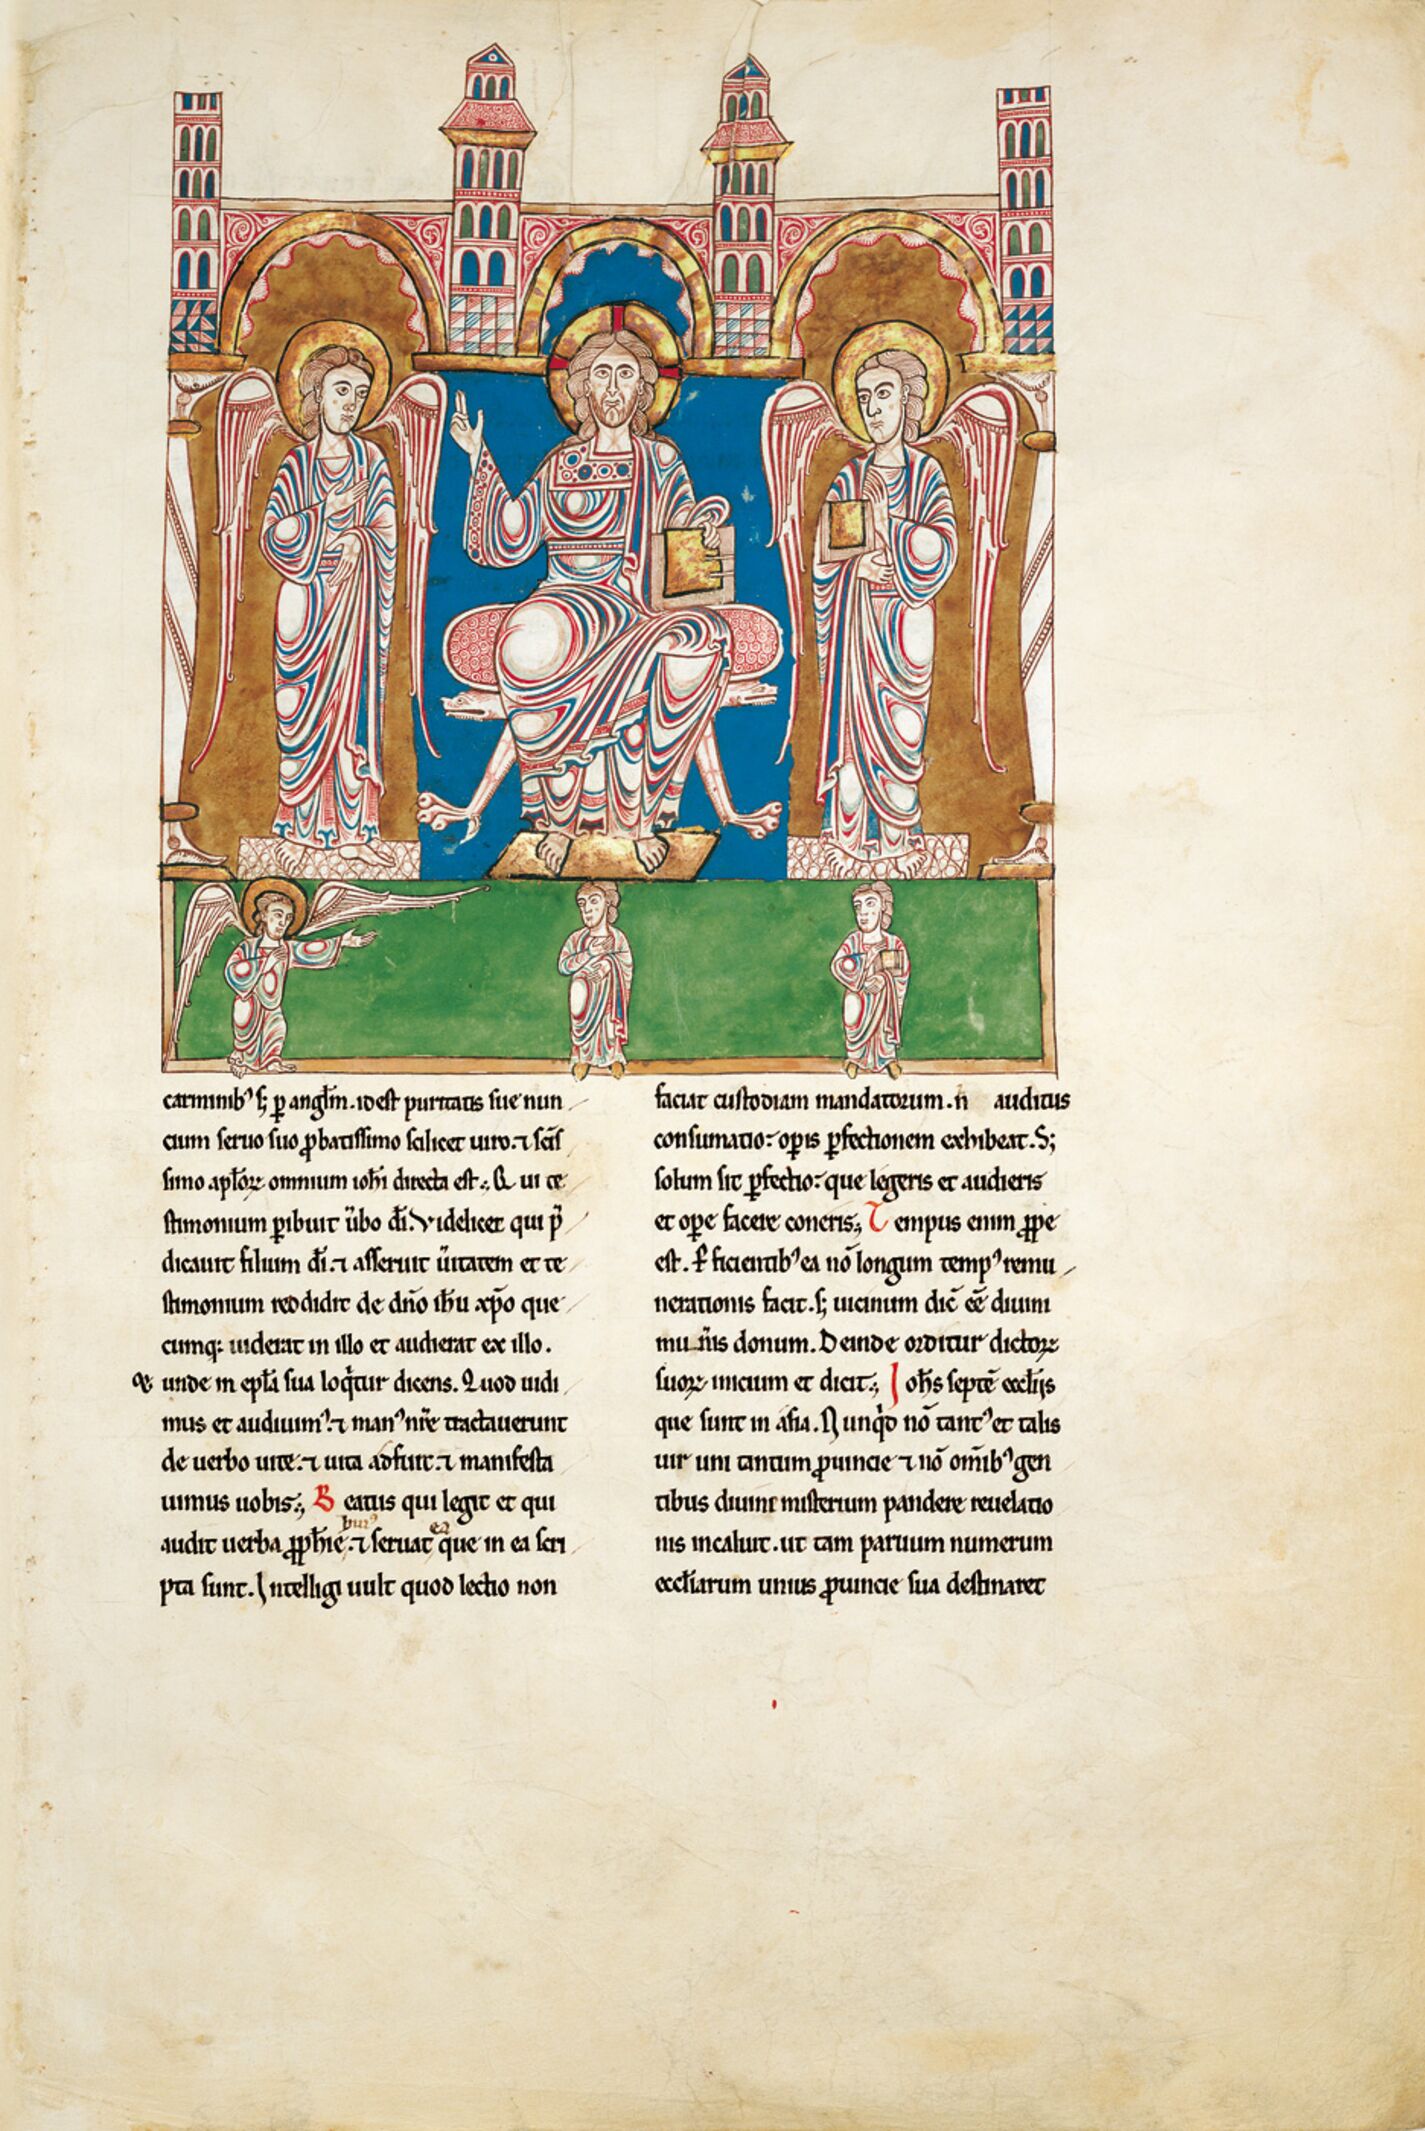 carminibꝰ ꝫ ꝑ angl̃m. id est puritatis sue nun
cium seruo suo ꝓbatissimo scilicet uiro. ⁊ sc̃is
simo apl̃oꝝ omnium ioh̃i directa est. Qui te
stimonium ꝑibuit ũbo dĩ. Videlicet qui p̃
dicauit filium dĩ. ⁊ asseruit ũitatem et te
stimonium reddidit de dño ih̃u xp̃o que
cumq: uiderat in illo et audierat ex illo.
unde in epl̃a sua loq̃tur dicens. Quod uidi
mus et audiuimꝰ. ⁊ manꝰ nr̃e tractauerunt
de uerbo uite. ⁊ uita adfuit. ⁊ manifesta
uimus uobis. Beatus qui legit et qui
audit uerba ꝓph̃ie huiꝰ. ⁊ seruat ea que in ea scri
pta sunt. Intelligi uult quod lectio non
faciat custodiam mandatorum. ñ auditus
consumatio: oꝑis ꝑfectionem exhibeat. S;
solum sit ꝑfectio: que legeris et audieris
et oꝑe facere coneris. Tempus enim ꝓpe
est. ꝑficientibꝰ ea nõ longum tempꝰ remu
nerationis facit. ꝫ uicinum dic̃ ee᷉ diuini
mu nĩs donum. Deinde orditur dictoꝝ
suoꝝ inicium et dicit. Ioh̃s septẽ eccl̃iis
que sunt in asia. Nunq̃d nõ tantꝰ et talis
uir uni tantum ꝓuincie ⁊ nõ om̃ibꝰ gen
tibus diuini misterium pandere reuelatio
nis incaluit. ut tam paruum numerum
eccl̃iarum unius ꝓuincie sua destinaret